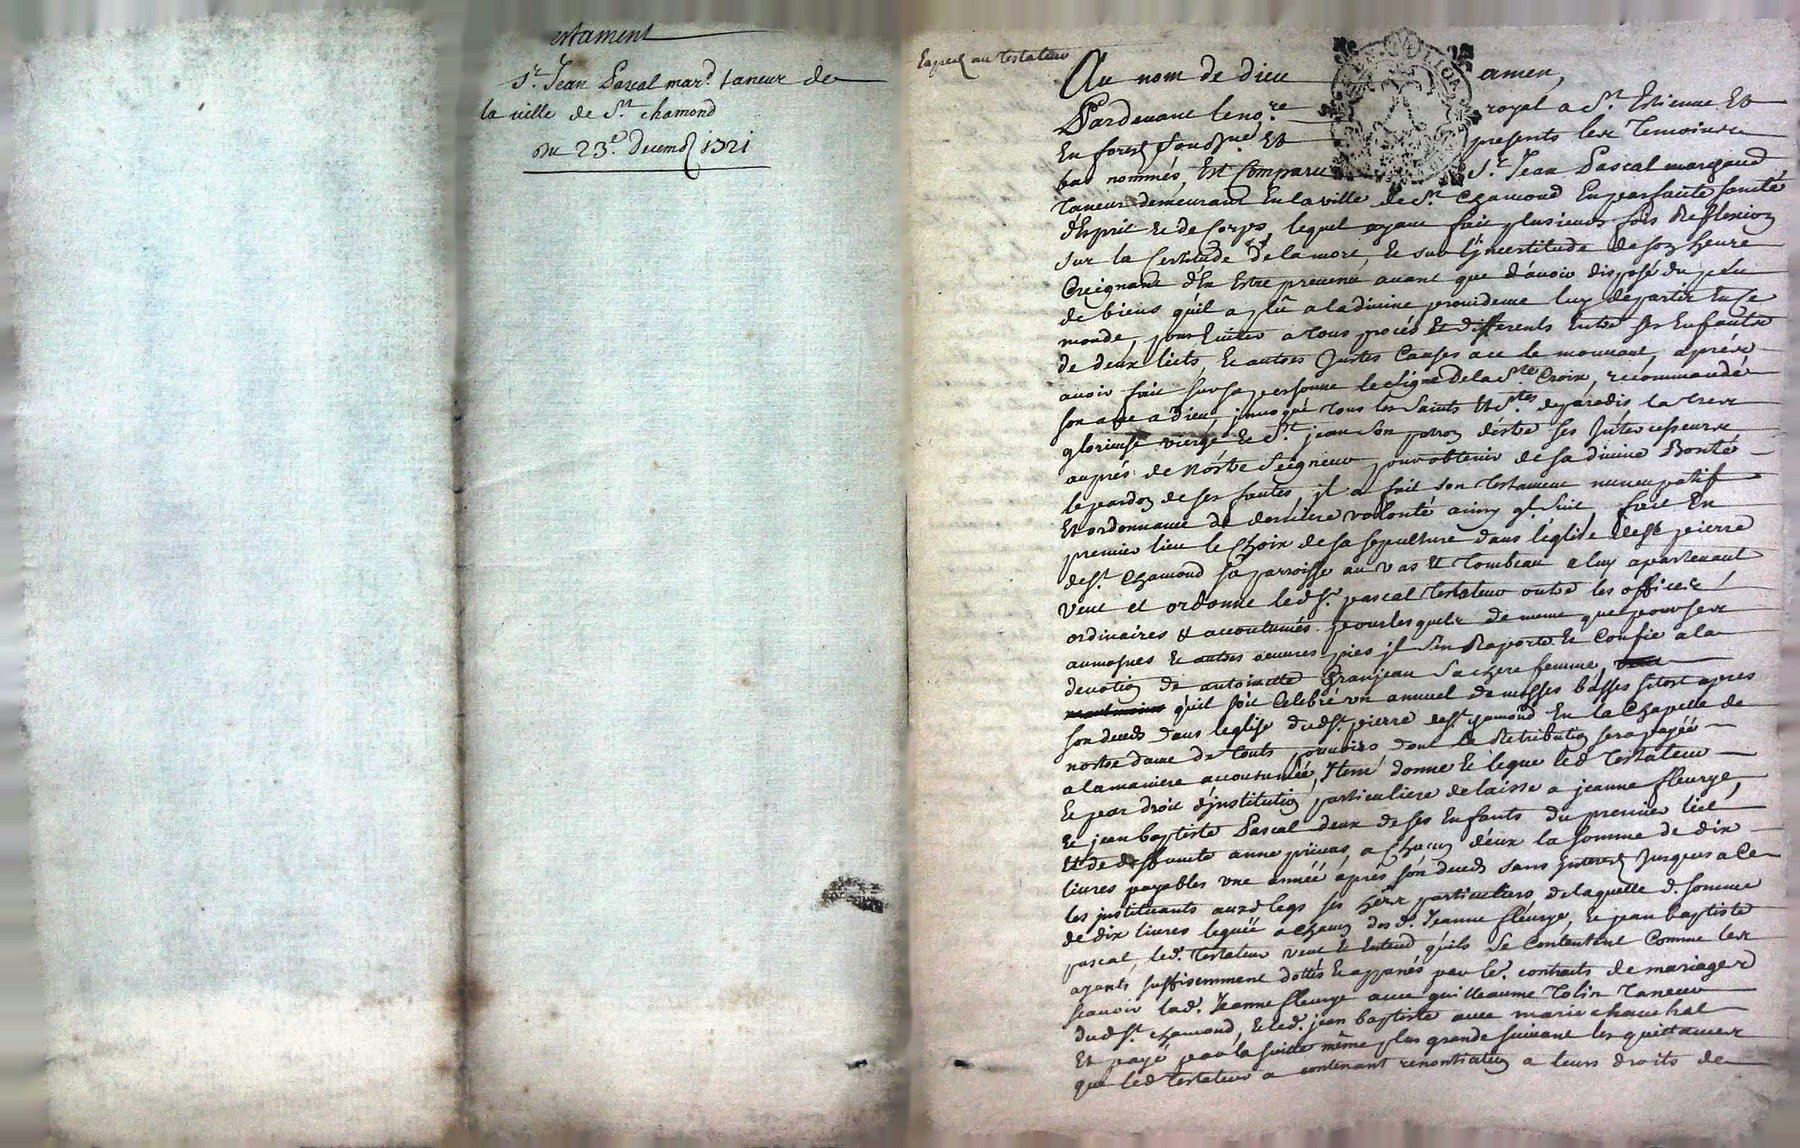 estament
Sr. Jean Pascal mard. taneur de
la ville de St. chamond
du 23e. Decemb 1721
Expedé au testateur
Au nom de dieu amen,
Pardevant le nore. royal a St. Estienne Et
En forest soussigné Et presents les Temoins
bas nommés, Est Comparu Sr. Jean Pascal marchand
Taneur demeurant En la ville de St. Chamond En parfaite santé
d'Esprit et de Corps, lequel ayant fait plusieurs fois Reflexion
sur la Certitude de la mort, et sur l'jncertitude de son heure
Creignant d'En Estre prevenu avant que d'avoir disposé du peu
de biens qu'il a plû a la divine providence luy départir En Ce
monde, pour Eviter a tous procés Et differents Entre ses Enfants
de deux licts, et autres Justes Causes a ce le mouvant, aprés
avoir fait sur sa personne le signe de la Ste. Croix, recommandé
son ame a Dieu, jnvoqué tous les Saints Et Stes. de paradis la tres
glorieuse vierge et St. jean son patron d'estre ses Jntercesseurs
auprés de Nostre Seigneur pour obtenir de sa divine Bonté
le pardon de ses fautes, jl a fait son testament nuncupatif
Et ordonnance de derniere volonté ainsy q. suit, fait En
premier lieu le Choix de sa sepulture dans l'églize de St pierre
de St. Chamond sa parroisse au vas Et tombeau a luy apartenant
Veut et ordonne led Sr. pascal testateur outre les offices
ordinaires & accoutumés pour lesquels de meme que pour ses
aumosnes et autres oeuvres pies jl s'en Raporte et Confie a la
devotion de antoinette Granjean sa chere femme,
qu'il soit Celebré un annuel de messes basses sitost apres
son deceds dans l'eglise dud St. pierre de St. chamond En la Chapelle de
nostre dame de touts pouvoirs dont la Retribution sera payéé
a la maniere accoutuméé, Jtem donne et legue led testateur
Et par droit d'jnstitution particuliere delaisse a jeanne fleurye,
Et jean baptiste Pascal deux de ses Enfants du premier lict,
Et de deffuncte anne privas, a Chacun d'eux la somme de dix
livres payables une annéé aprés son deceds sans jnterest Jusques a Ce
les jnstituants auxd legs ses herrs particuliers de laquelle d. somme
de dix livres leguéé a Chacun des d. Jeanne fleurye, et jean baptiste
pascal, led. testateur veut Et Entend qu'ils se Contentent Comme les
ayants suffisemment dottés Et appanés par lrs. contrats de mariages
scavoir lad. Jeanne fleurye avec guilleaume tolin taneur
dud St. chamond, et led. jean baptiste avec marie
Et payé par la suitte même plus grande suivant les quittances
que led testateur a contenant renontiation a leurs droits de